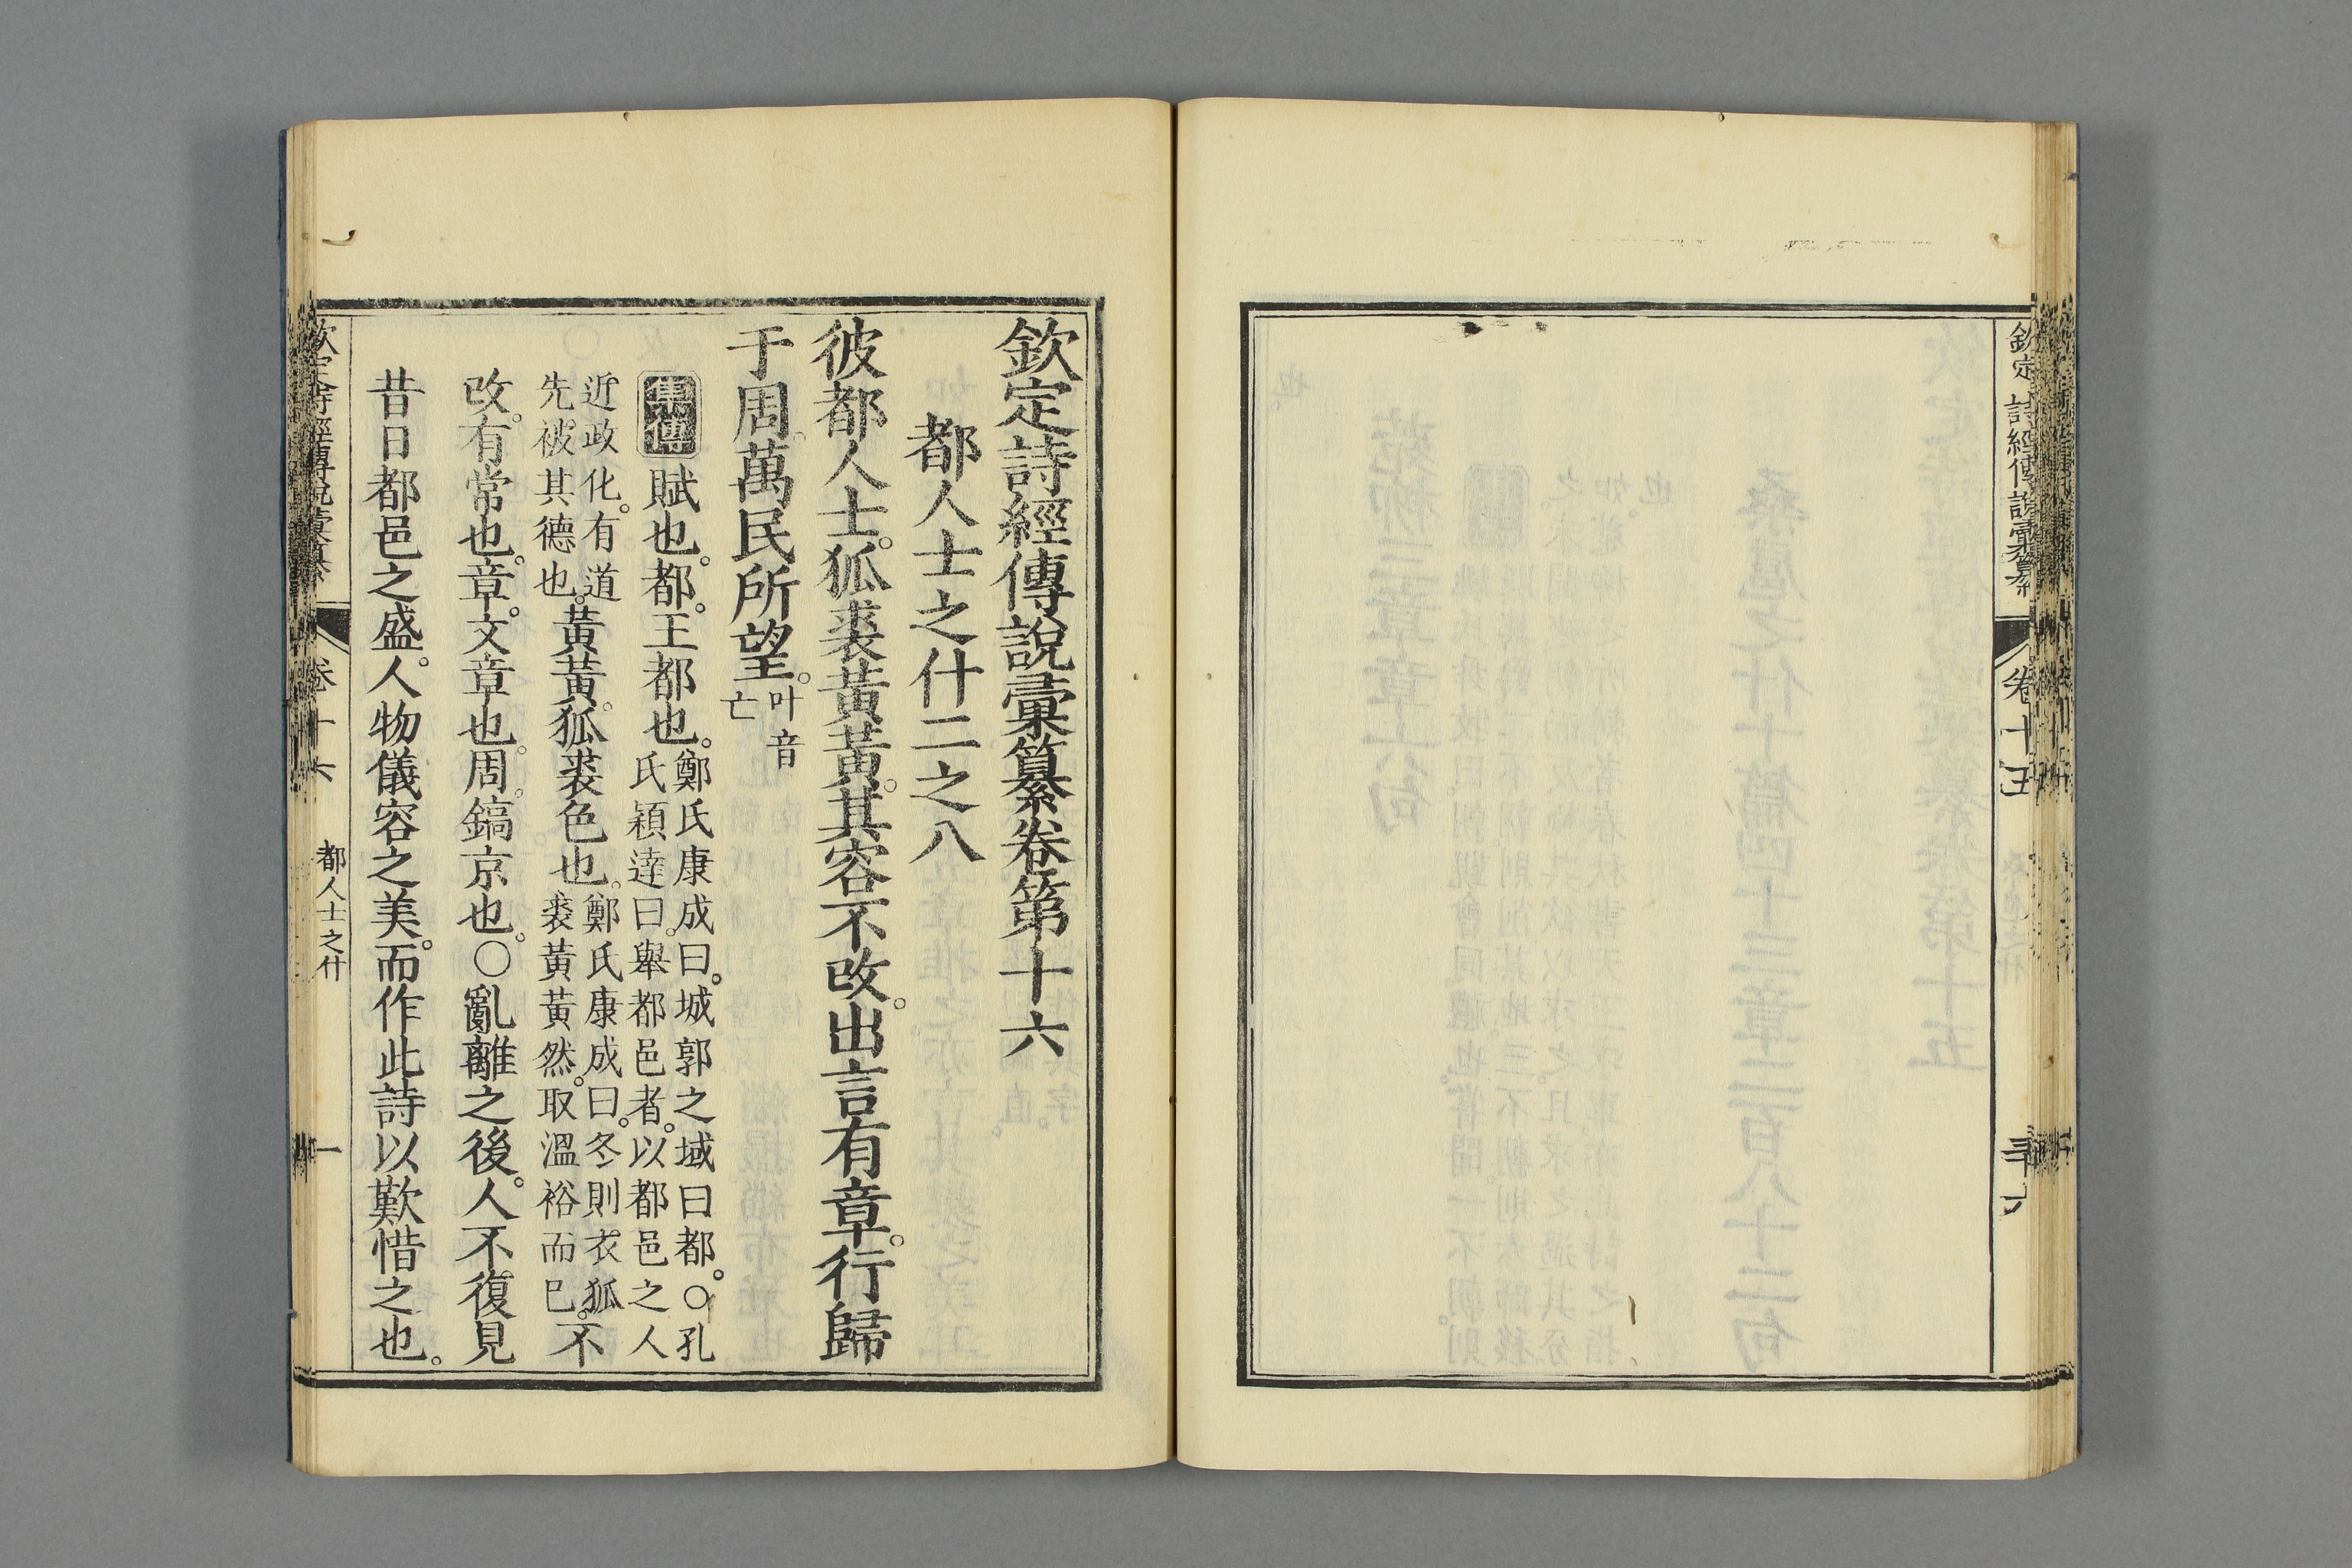 欽定詩經傳說彙纂 卷十五 三十六
欽定詩經傳說彙纂卷第十六
都人士之什二之八
彼都人士。狐裘黃黃。其容不改。出言有章。行歸
于周。萬民所望。叶音亡
集傳 賦也。都。王都也。鄭氏康成曰。城郭之域曰都。○孔氏穎達曰。舉都邑者。以都邑之人
近政化。有道先被其德也。黃黃。狐裘色也。鄭氏康成曰。冬則衣狐裘黃黃然。取溫裕而已。不
改。有常也。章。文章也。周。鎬京也。○亂離之後。人不復見
昔日都邑之盛。人物儀容之美。而作此詩以歎惜之也。
欽定詩經傳說彙纂 卷十六 都人士之什 一